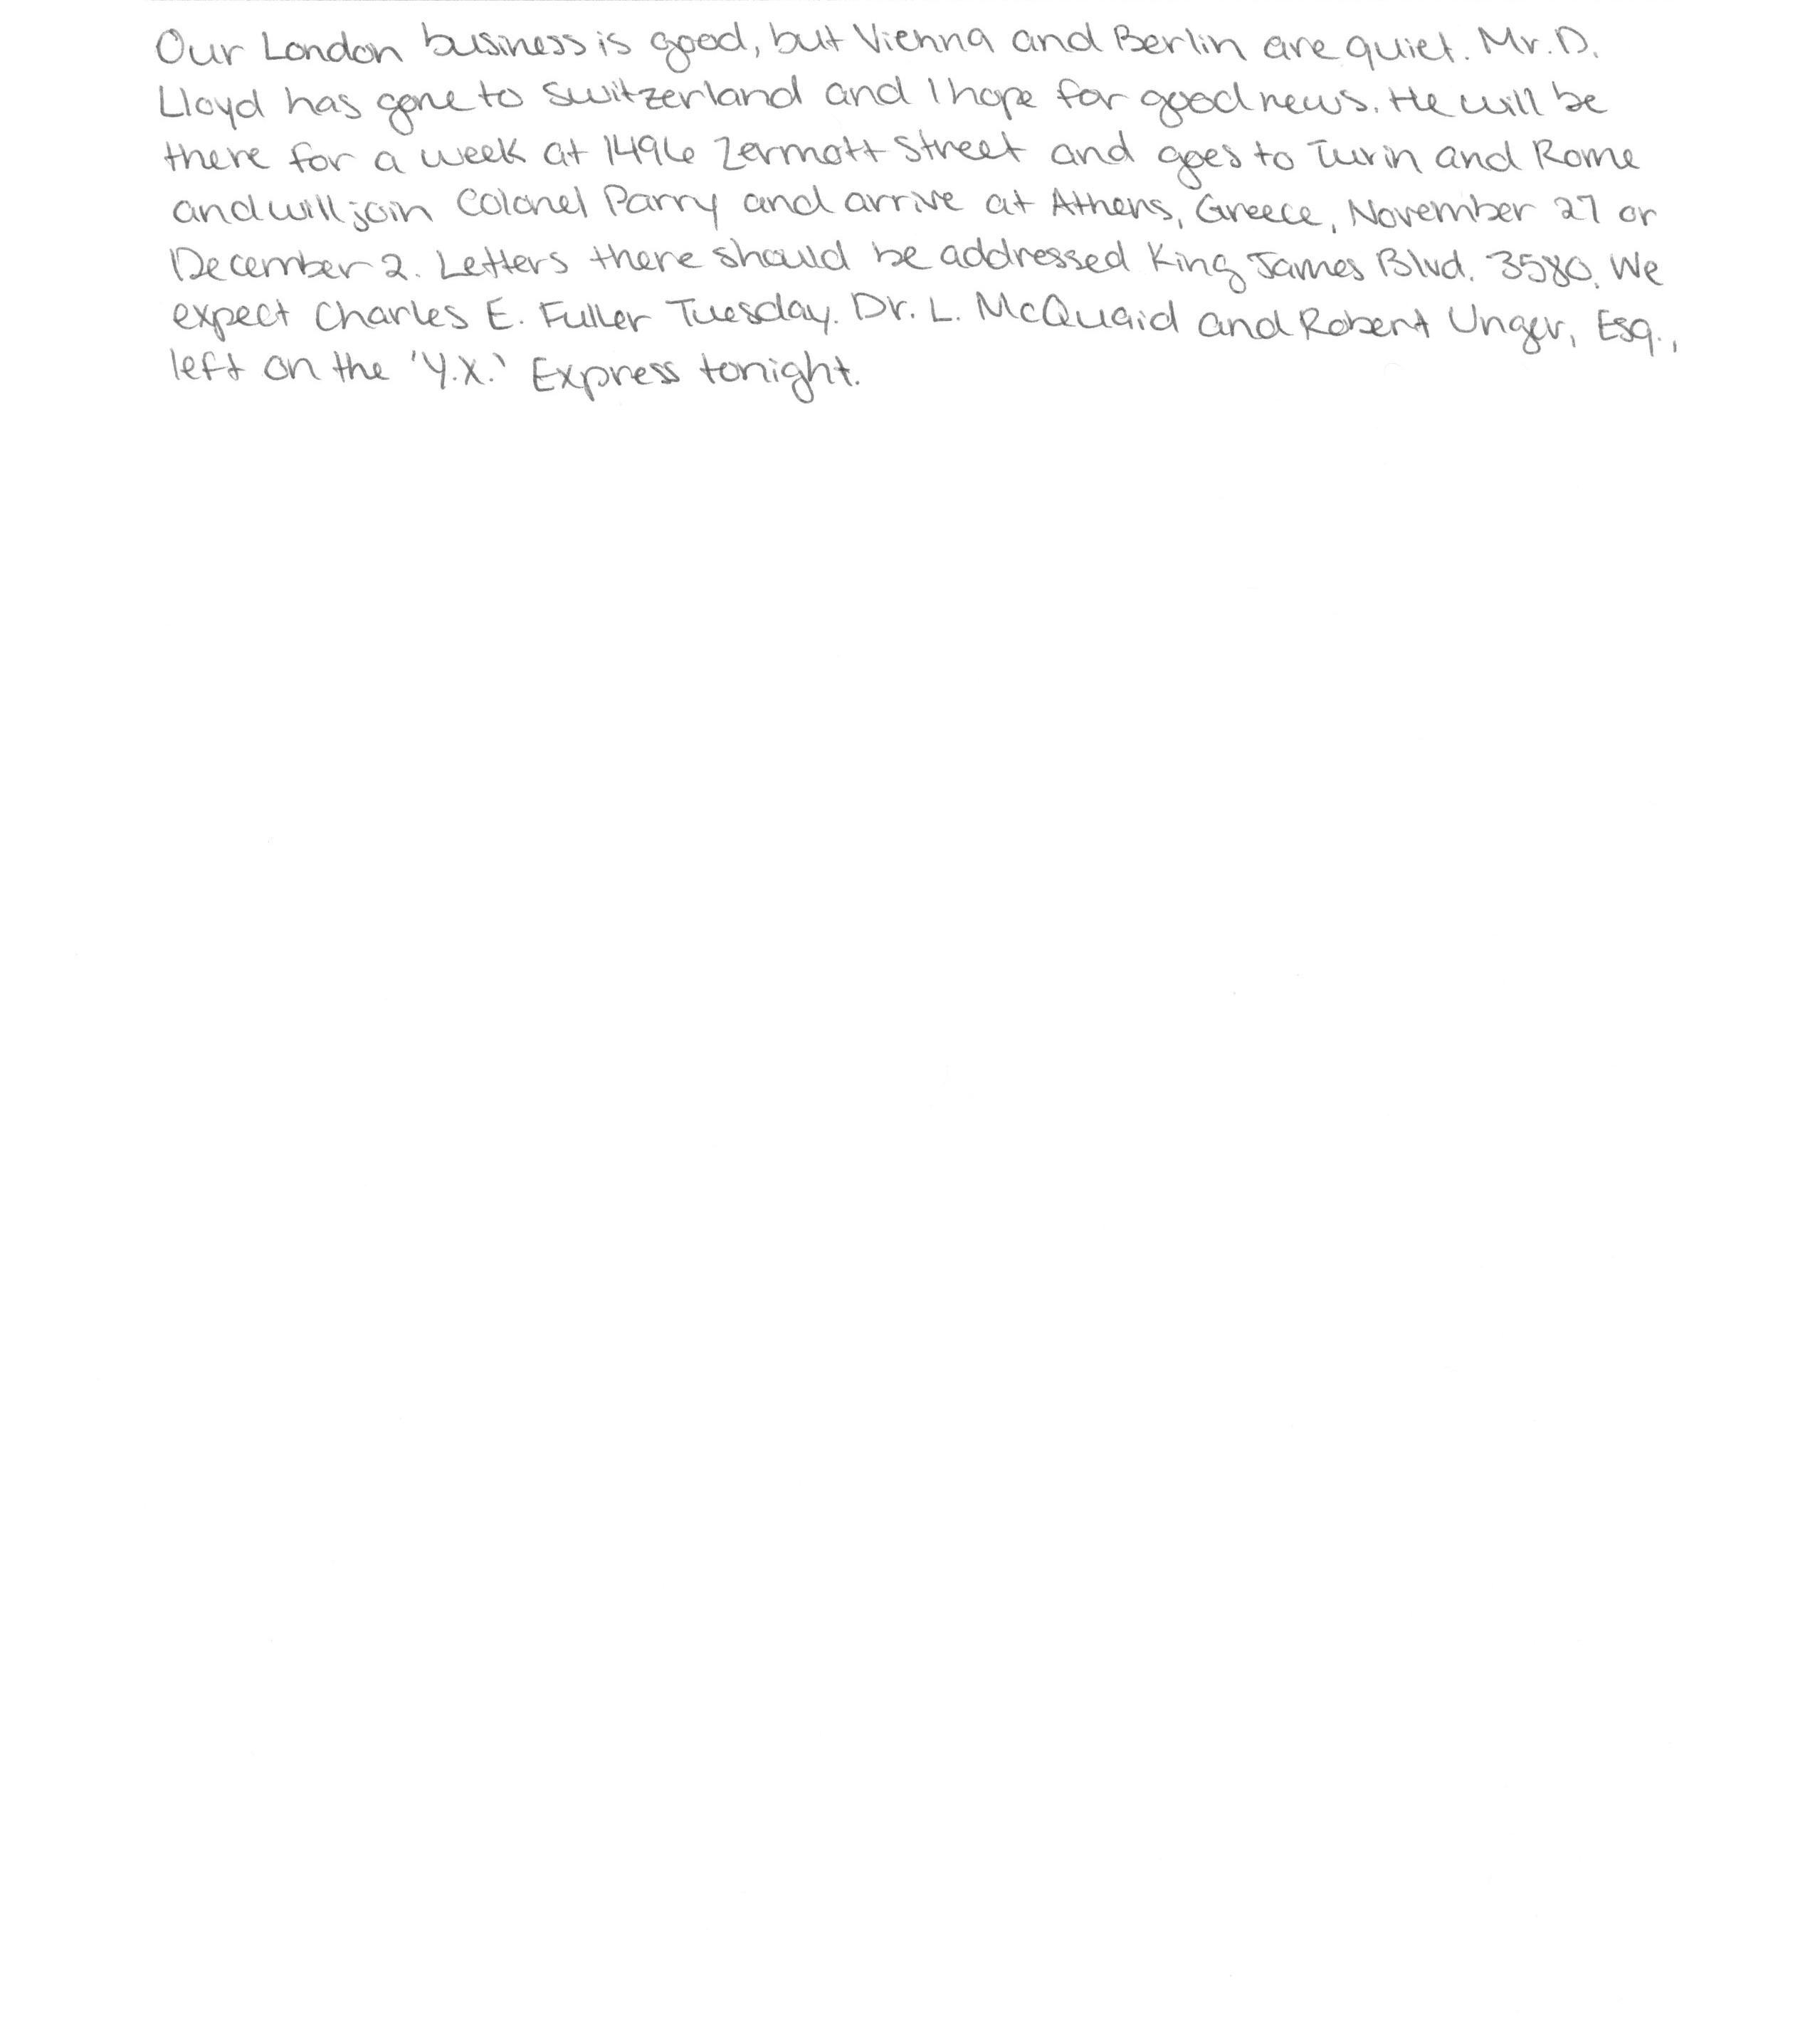 Our London business is good, but Vienna and Berlin are quiet. Mr. D.
Lloyd has gone to Switzerland and I hope for good news. He will be
there for a week at 1496 Zermott Street and goes to Turin and Rome
and will join Colonel Parry and arrive at Athens, Greece, November 27 or
December 2. Letters there should be addressed King James Blvd. 3580. We
expect Charles E. Fuller Tuesday. Dr. L. McQuaid and Robert Unger, Esq.,
left on the 'Y.X.' Express tonight.